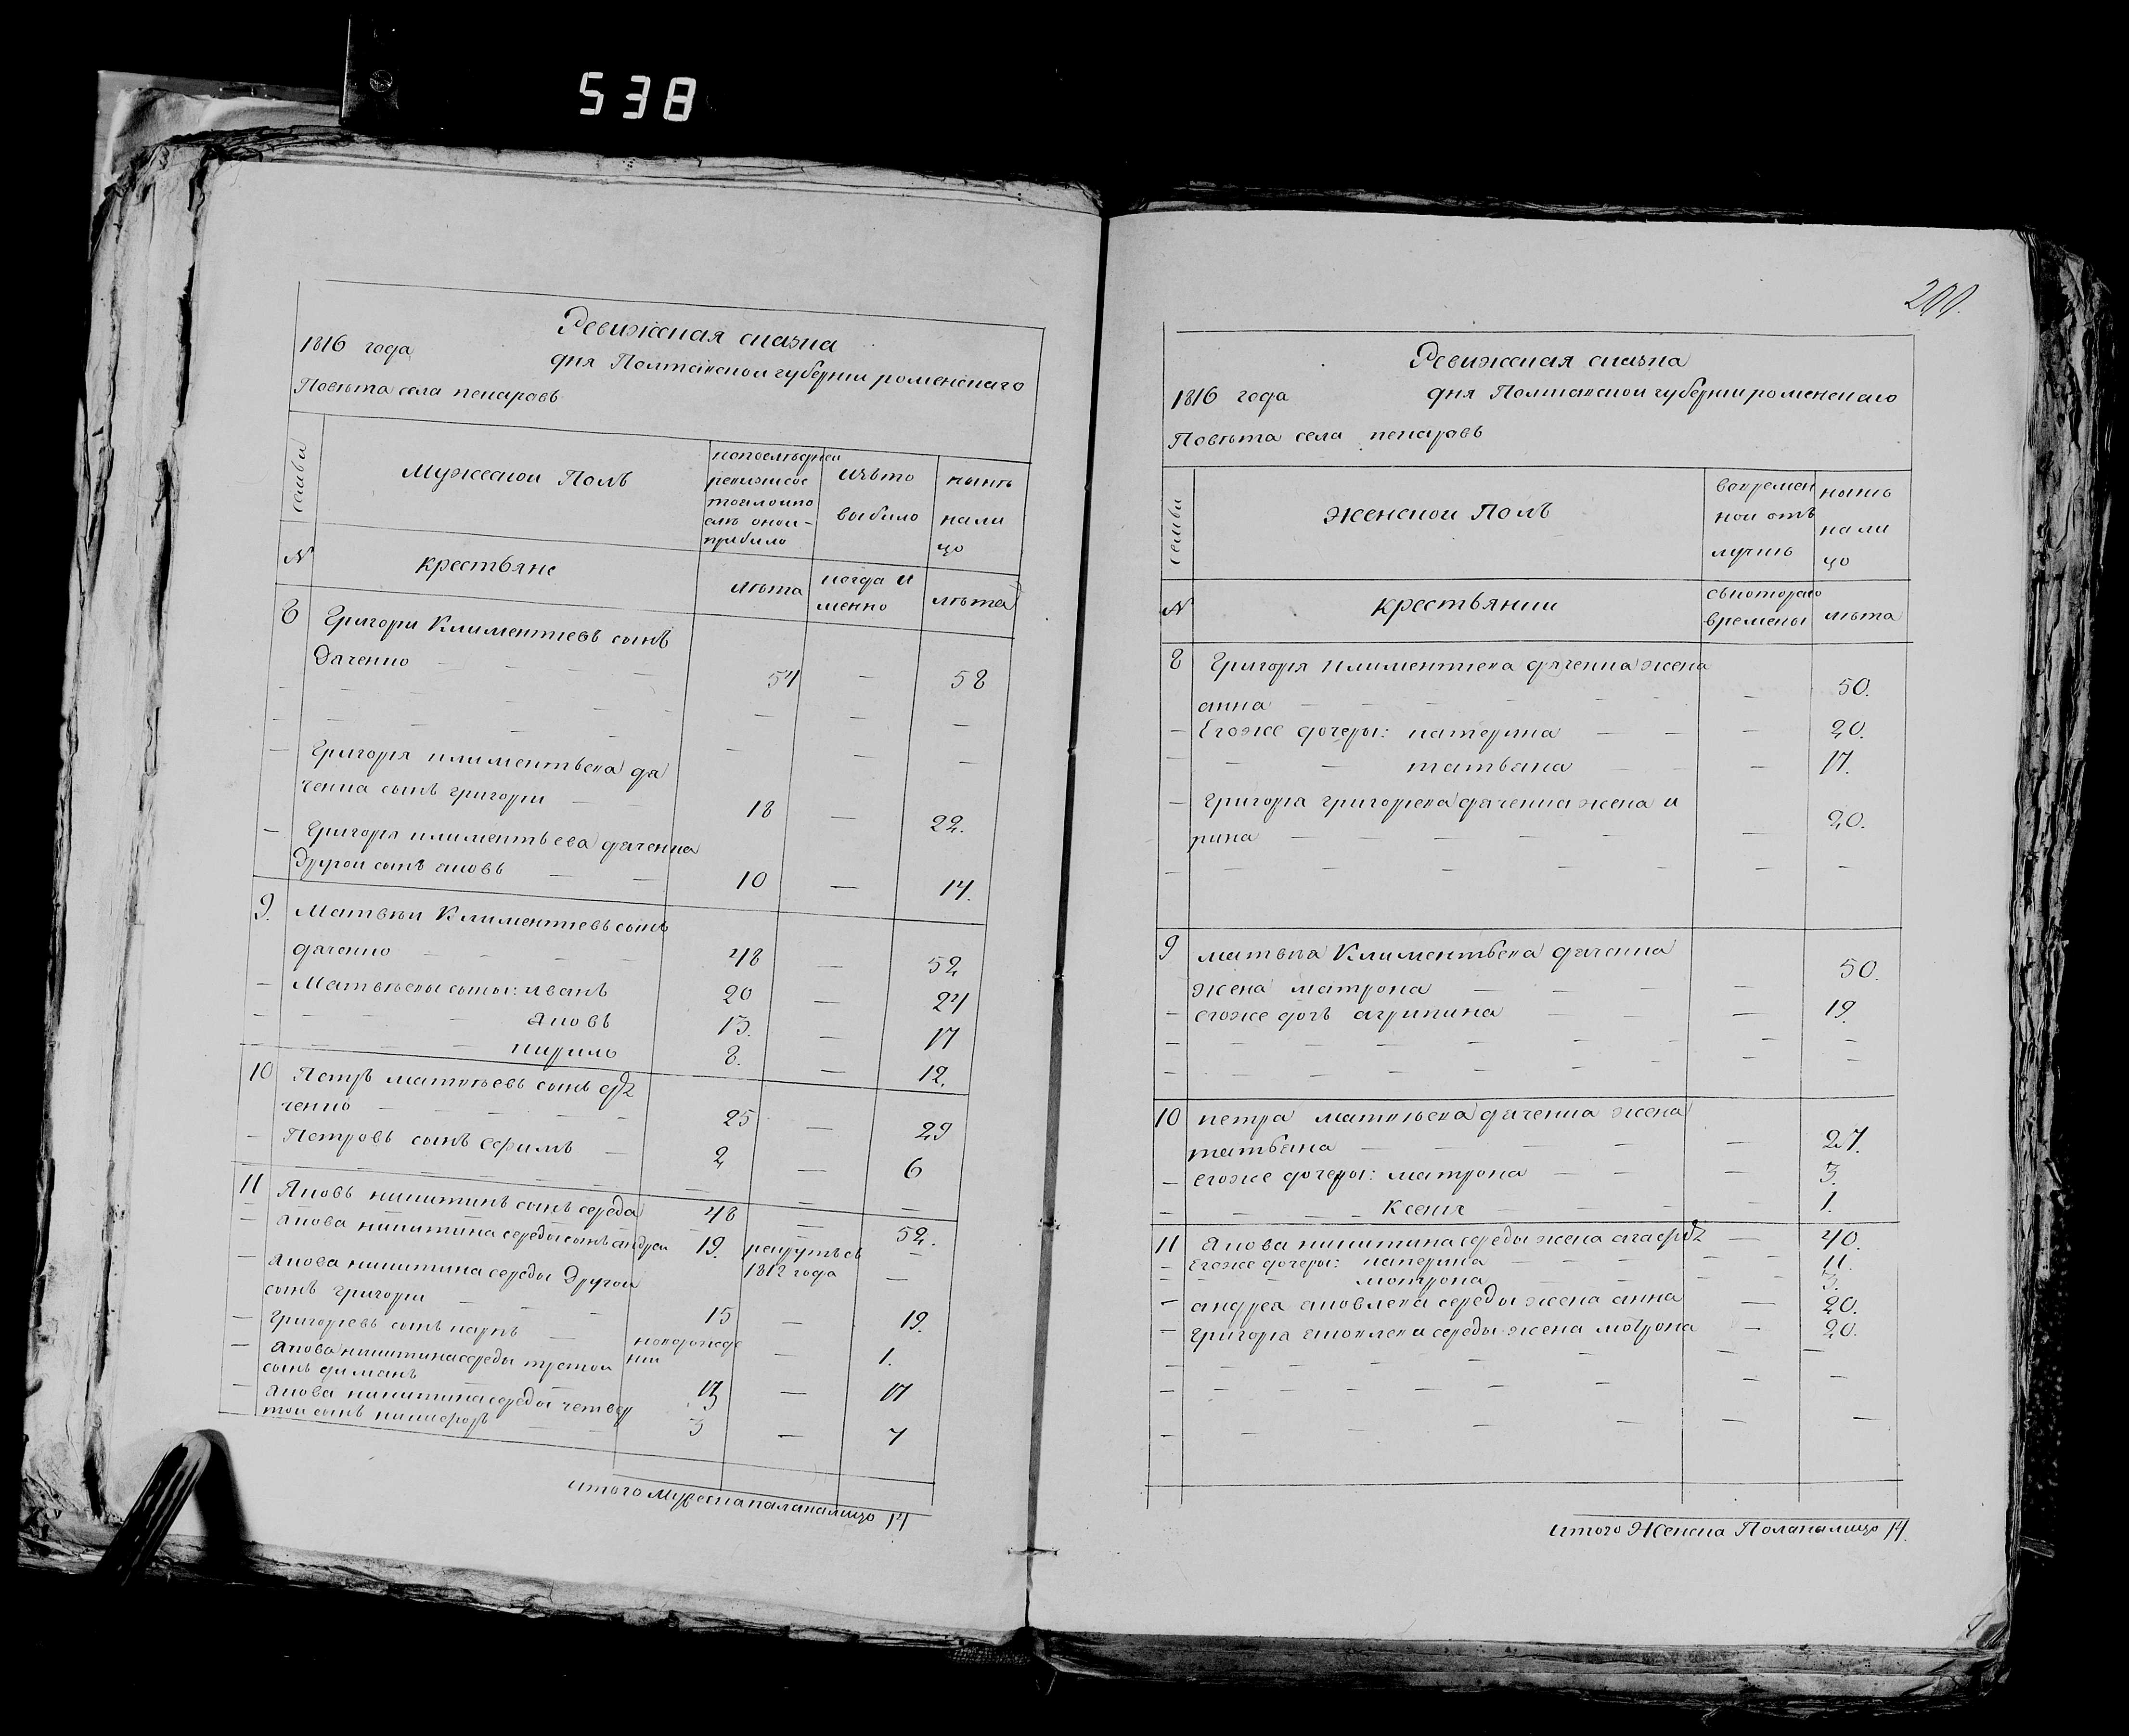 538
Ревижская сказка
1816 года дня Полтавской губернии роменского
Повѣта села пекаровъ
семьи
Мужеской Полъ
крестьяне
N
лѣта
когда и
менно
лѣта
изъ то
выбыло
нынѣ
нали
цо
8 Григори Климентиевъ сынъ
Даченко — 54 — 58
Григоря климентьева да
ченка сынъ григори — 18 — 22.
Григоря климентьева даченка
Другои сынъ яковъ — 10 — 14.
9. Матвѣи Климентиевъ сынъ
даченко — 48 — 52
Матвѣевы сыны: иванъ 20 — 24
яковъ 13. — 17
кирило 8. — 12.
10 Петръ матвѣевъ сынъ дя
ченко — 25 — 29
Петровъ сынъ Ефимъ — 2 — 6
11 Яковъ никитинъ сынъ середа 48 — 52.
якова никитина середы сынъ андреи 19. рекрутъ съ
1812 года —
якова никитина середы Другои
сынъ григори — 15 — 19.
григориевъ сынъ карпъ — новорожде
нии — 1.
якова никитина середы третои
сынъ — 13 — 17
якова никитина середы четвер
тои сынъ никифоръ — 3 — 7
итого Мужеска пала налицо 14
200.
Ревижская сказка
1816 года дня Полтавской губернии роменского
Повѣта села пекаровъ
семьи
Женской Полъ
вовремен
ной отъ
лучкѣ
нынѣ
нали
цо
N
крестьянии
съкоторого
времены
лѣта
8 Григоря климентиева даченка жена
анна — — 50.
Егоже дочеры: катерина — — 20.
татьяна — — 17.
Григоря григориева даченка жена и
рина — — 20.
9 матвѣя Климентьева даченка
жена матрона — — 50.
егоже дочь агрипина — — 19.
10 петра матвѣева даченка жена
татьяна — — 27.
егоже дочеры: матрона — — 3.
Ксения — — 1.
11 Якова никитина середы жена агафия — 40.
Егоже дочеры: катерина — — 11.
мотрона — — 3.
андрея яковлева середы жена анна — 20.
Григоря яковлева середы жена мотрона — 20.
итого Женска Пола налицо 14.